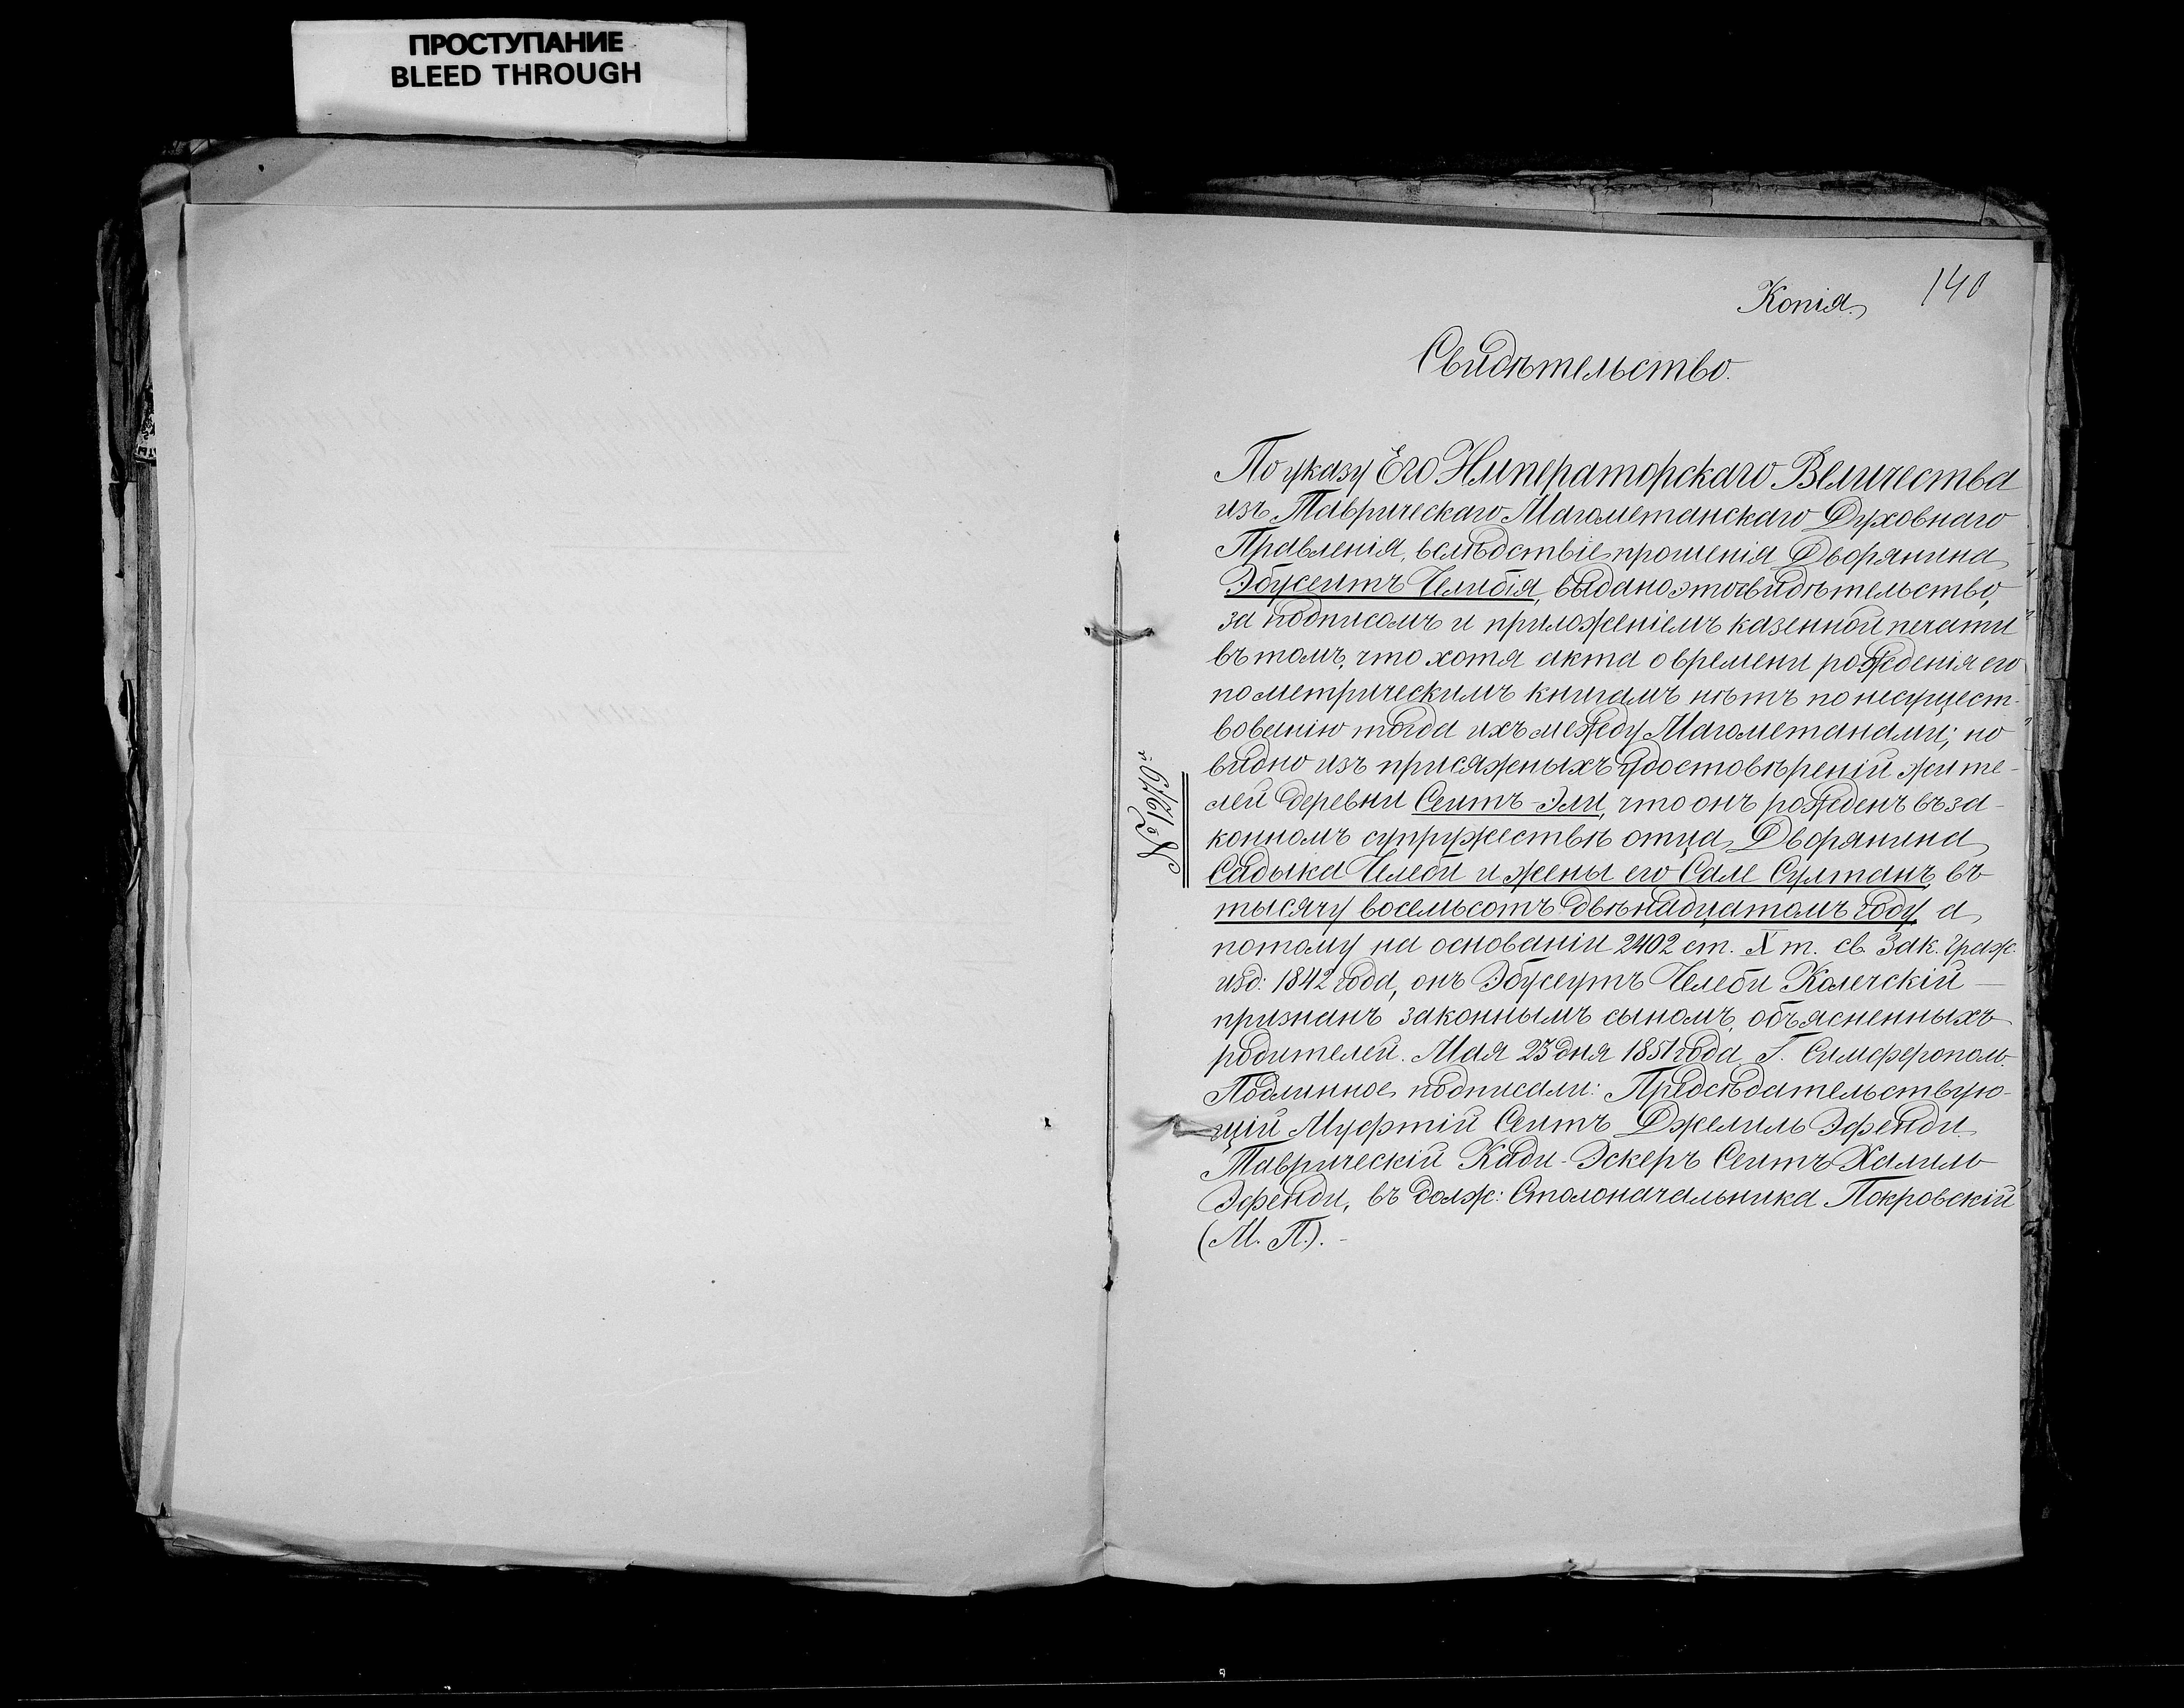 ПРОСТУПАНИЕ
BLEED THROUGH
140
Копія.
Свидѣтельство.
По указу Его Императорскаго Величества
изъ Таврическаго Магометанскаго Духовнаго
Правленія, вслѣдствіе прошенія Дворянина
Эбусеитъ Челибія, выдано это свидѣтельство,
за подписомъ и приложеніемъ казенной печати
въ томъ, что хотя акта о времени рожденія его
по метрическимъ книгамъ нѣтъ по несущест-
вованію тогда ихъ между Магометанами; но
видно изъ присяжныхъ удостовѣреній жите-
лей деревни Сеитъ-Эли, что онъ рожденъ въ за-
конномъ супружествѣ отца Дворянина
Садыка Челеби и жены его Сале Султанъ въ
тысячу восемьсотъ двѣнадцатомъ году а
потому на основаніи 2402 ст. X т. св. Зак. Граж.
изд: 1842 года, онъ Эбусеутъ Челеби Колечскій —
признанъ законнымъ сыномъ объясненныхъ
родителей. Мая 23 дня 1851 года Г. Симферополь.
Подлинное подписали: Предсѣдательствую-
щій Муфтій Сеитъ Джелиль Эфенди
Таврическій Кади-Эскеръ Сеитъ Халиль
Эфенди, въ долж: Столоначальника Покровскій
(М. П.). -